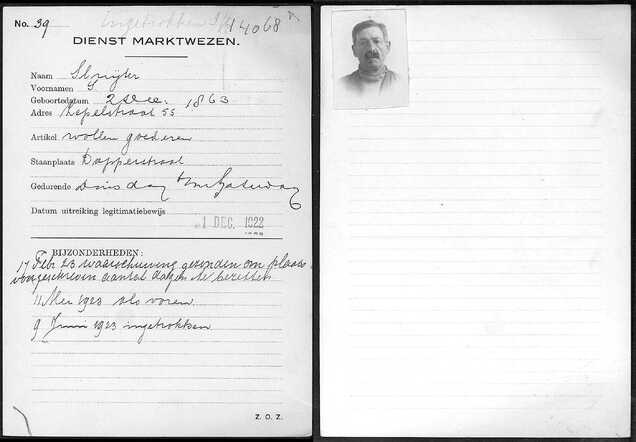 No. 39
Ingetrokken
14068
DIENST MARKTWEZEN.
Naam Sluijter
Voornamen S
Geboortedatum 2 Dec. 1863
Adres Uepelstraat 55
Artikel wollen goederen
Staanplaats Dapperstraat
Gedurende Dinsdag t/m Zaterdag
Datum uitreiking legitimatiebewijs 1 DEC. 1922
BIJZONDERHEDEN:
17 Febr 23 waarschuwing gezonden om plaats
voorgeschreven aantal dagen te bezetten
11 Mei 1923 als voren
9 Juni 1923 ingetrokken
Z. O. Z.